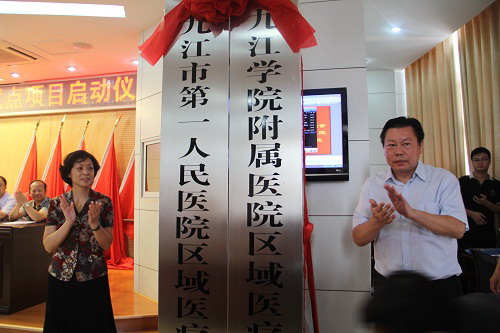 点项目启动仪
九江市第一人民医院区域医疗
九江学院附属医院区域医疗